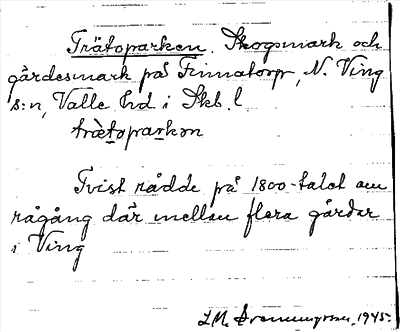 Trätoparken. Skogsmark och
gärdesmark på Finnatorp, N. Ving
s:n, Valle hd i Skb. l.
trätoparken
Tvist rådde på 1800-talet om
rågång där mellan flera gårdar
i Ving
1945.